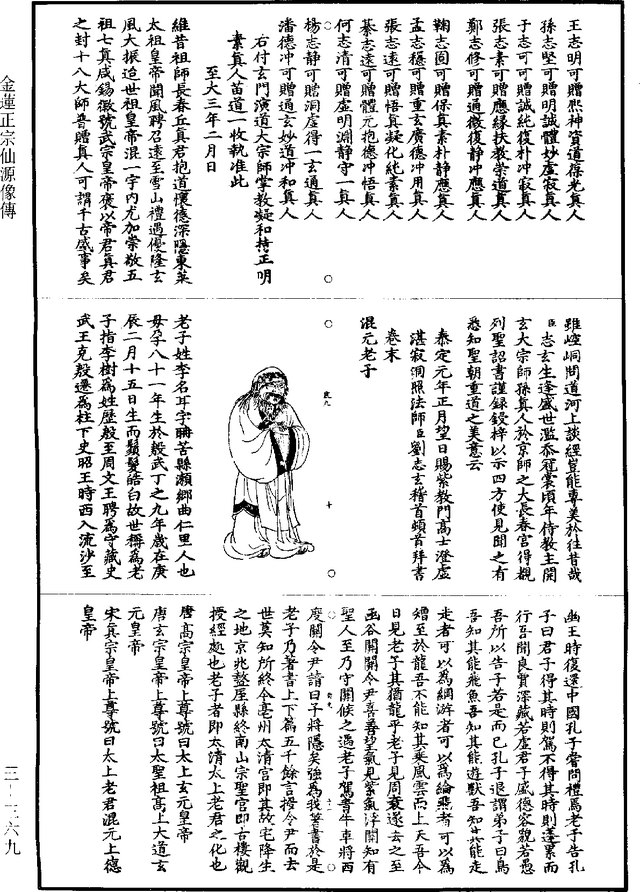 金蓮正宗仙源像傳
三-三六九
王志明可贈熙神資道葆光真人
孫志堅可贈明誠體妙虛寂真人
于志可可贈誠純復朴冲寂真人
張志素可贈應緣扶教崇道真人
鄭志修可贈通微復靜冲應真人
鞠志圓可贈保真素朴靜應真人
孟志穩可贈重玄廣德冲用真人
張志遠可贈悟真凝化純素真人
綦志遠可贈體元抱德冲悟真人
何志清可贈虛明淵靜守一真人
楊志靜可贈洞虛得一玄通真人
潘德冲可贈通玄妙道冲和真人
右付玄門演道大宗師掌教凝和持正明
素真人苗道一收執准此
至大三年二月日
維昔祖師長春丘真君抱道懷德深隱東萊
太祖皇帝聞風聘召遠至雪山禮遇優隆玄
風大振迨世祖皇帝混一宇内尤加崇敬五
祖七真咸錫徽號武宗皇帝褒以帝君真君
之封十八大師普贈真人可謂千古盛事矣
雖崆峒問道河上談經豈能專美於往昔哉
臣志玄生逢盛世濫忝冠裳頃年侍教主開
玄大宗師孫真人於京師之大長春宮得覩
列聖詔書謹録鋟梓以示四方使見聞之有
悉知聖朝重道之美意云
泰定元年正月望日賜紫教門高士澄虛
湛寂洞照法師臣劉志玄稽首頓首拜書
卷末
混元老子
老子姓李名耳字聃苦縣瀨鄉曲仁里人也
母孕八十一年生於殷武丁之九年歲在庚
辰二月十五日生而鬚髮皓白故世稱為老
子指李樹為姓歷殷至周文王聘為守藏史
武王克殷遷為柱下史昭王時西入流沙至
幽王時復還中國孔子嘗問禮焉老子告孔
子曰君子得其時則駕不得其時則蓬累而
行吾聞良賈深藏若虛君子盛德容貌若愚
吾所以告子若是而已孔子退謂弟子曰鳥
吾知其能飛魚吾知其能游獸吾知其能走
走者可以為網游者可以為綸飛者可以為
矰至於龍吾不能知其乘風雲而上天吾今
日見老子其猶龍乎老子見周衰遂去之至
函谷關關令尹喜善望氣見紫氣浮關知有
聖人至乃守關候之遇老子駕青牛車將西
度關令尹請曰子將隱矣強為我著書於是
老子乃著書上下篇五千餘言授令尹而去
世莫知所終今亳州太清宮即其故宅降生
之地京兆盩厔縣終南山宗聖宮即古樓觀
授經處也老子者即太清太上老君之化也
唐高宗皇帝上尊號曰太上玄元皇帝
唐玄宗皇帝上尊號曰太聖祖高上大道玄
元皇帝
宋真宗皇帝上尊號曰太上老君混元上德
皇帝